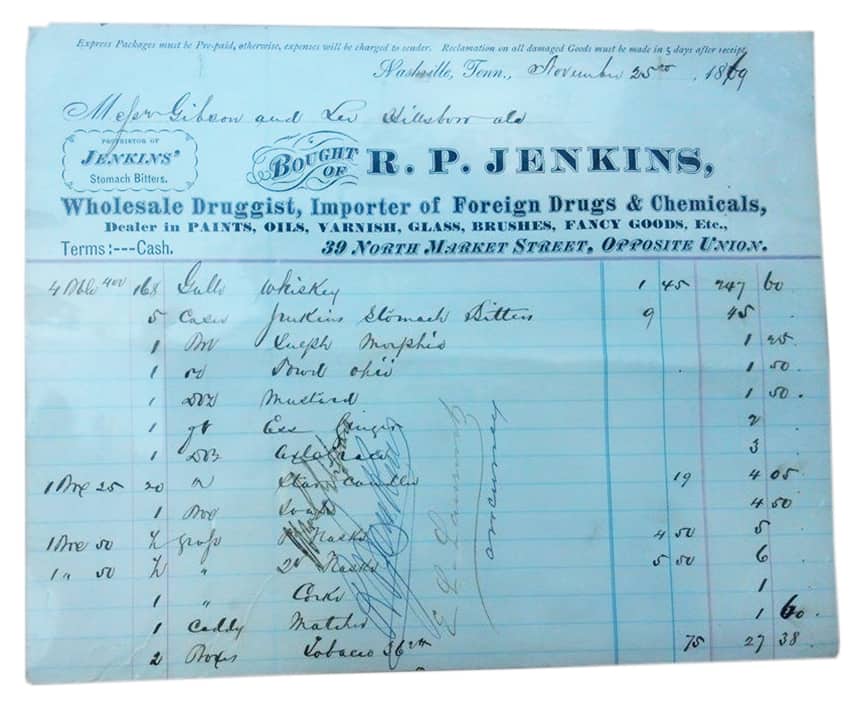 Express Packages must be Pre-paid, otherwise, expenses will be charged to sender. Reclamation on all damaged Goods must be made in 5 days after receipt.
Nashville, Tenn., November 25th, 1869
Messr Gibson and Lee Hillsboro
PROPRIETOR OF
JENKINS'
Stomach Bitters.
BOUGHT OF R. P. JENKINS,
Wholesale Druggist, Importer of Foreign Drugs & Chemicals,
Dealer in PAINTS, OILS, VARNISH, GLASS, BRUSHES, FANCY GOODS, Etc.,
Terms:---Cash. 39 NORTH MARKET STREET, OPPOSITE UNION.
4 Bbls 168 Galls Whiskey 1 45 247 60
5 Cases Jenkins Stomach Bitters 9 45
1 Sulph Morphia 1 25
1 1 50
1 Doz Mustard 1 50
1 Ess Ginger 2
1 Doz 3
1 Box 25 20 " Star Candles 19 4 05
1 Box Soap 4 50
1 Box 50 ½ gross Flasks 4 50 5
1 " 50 ½ " Flasks 5 50 6
1 " Corks 1
1 Caddy Matches 1 60
2 Boxes Tobacco 36 75 27 38